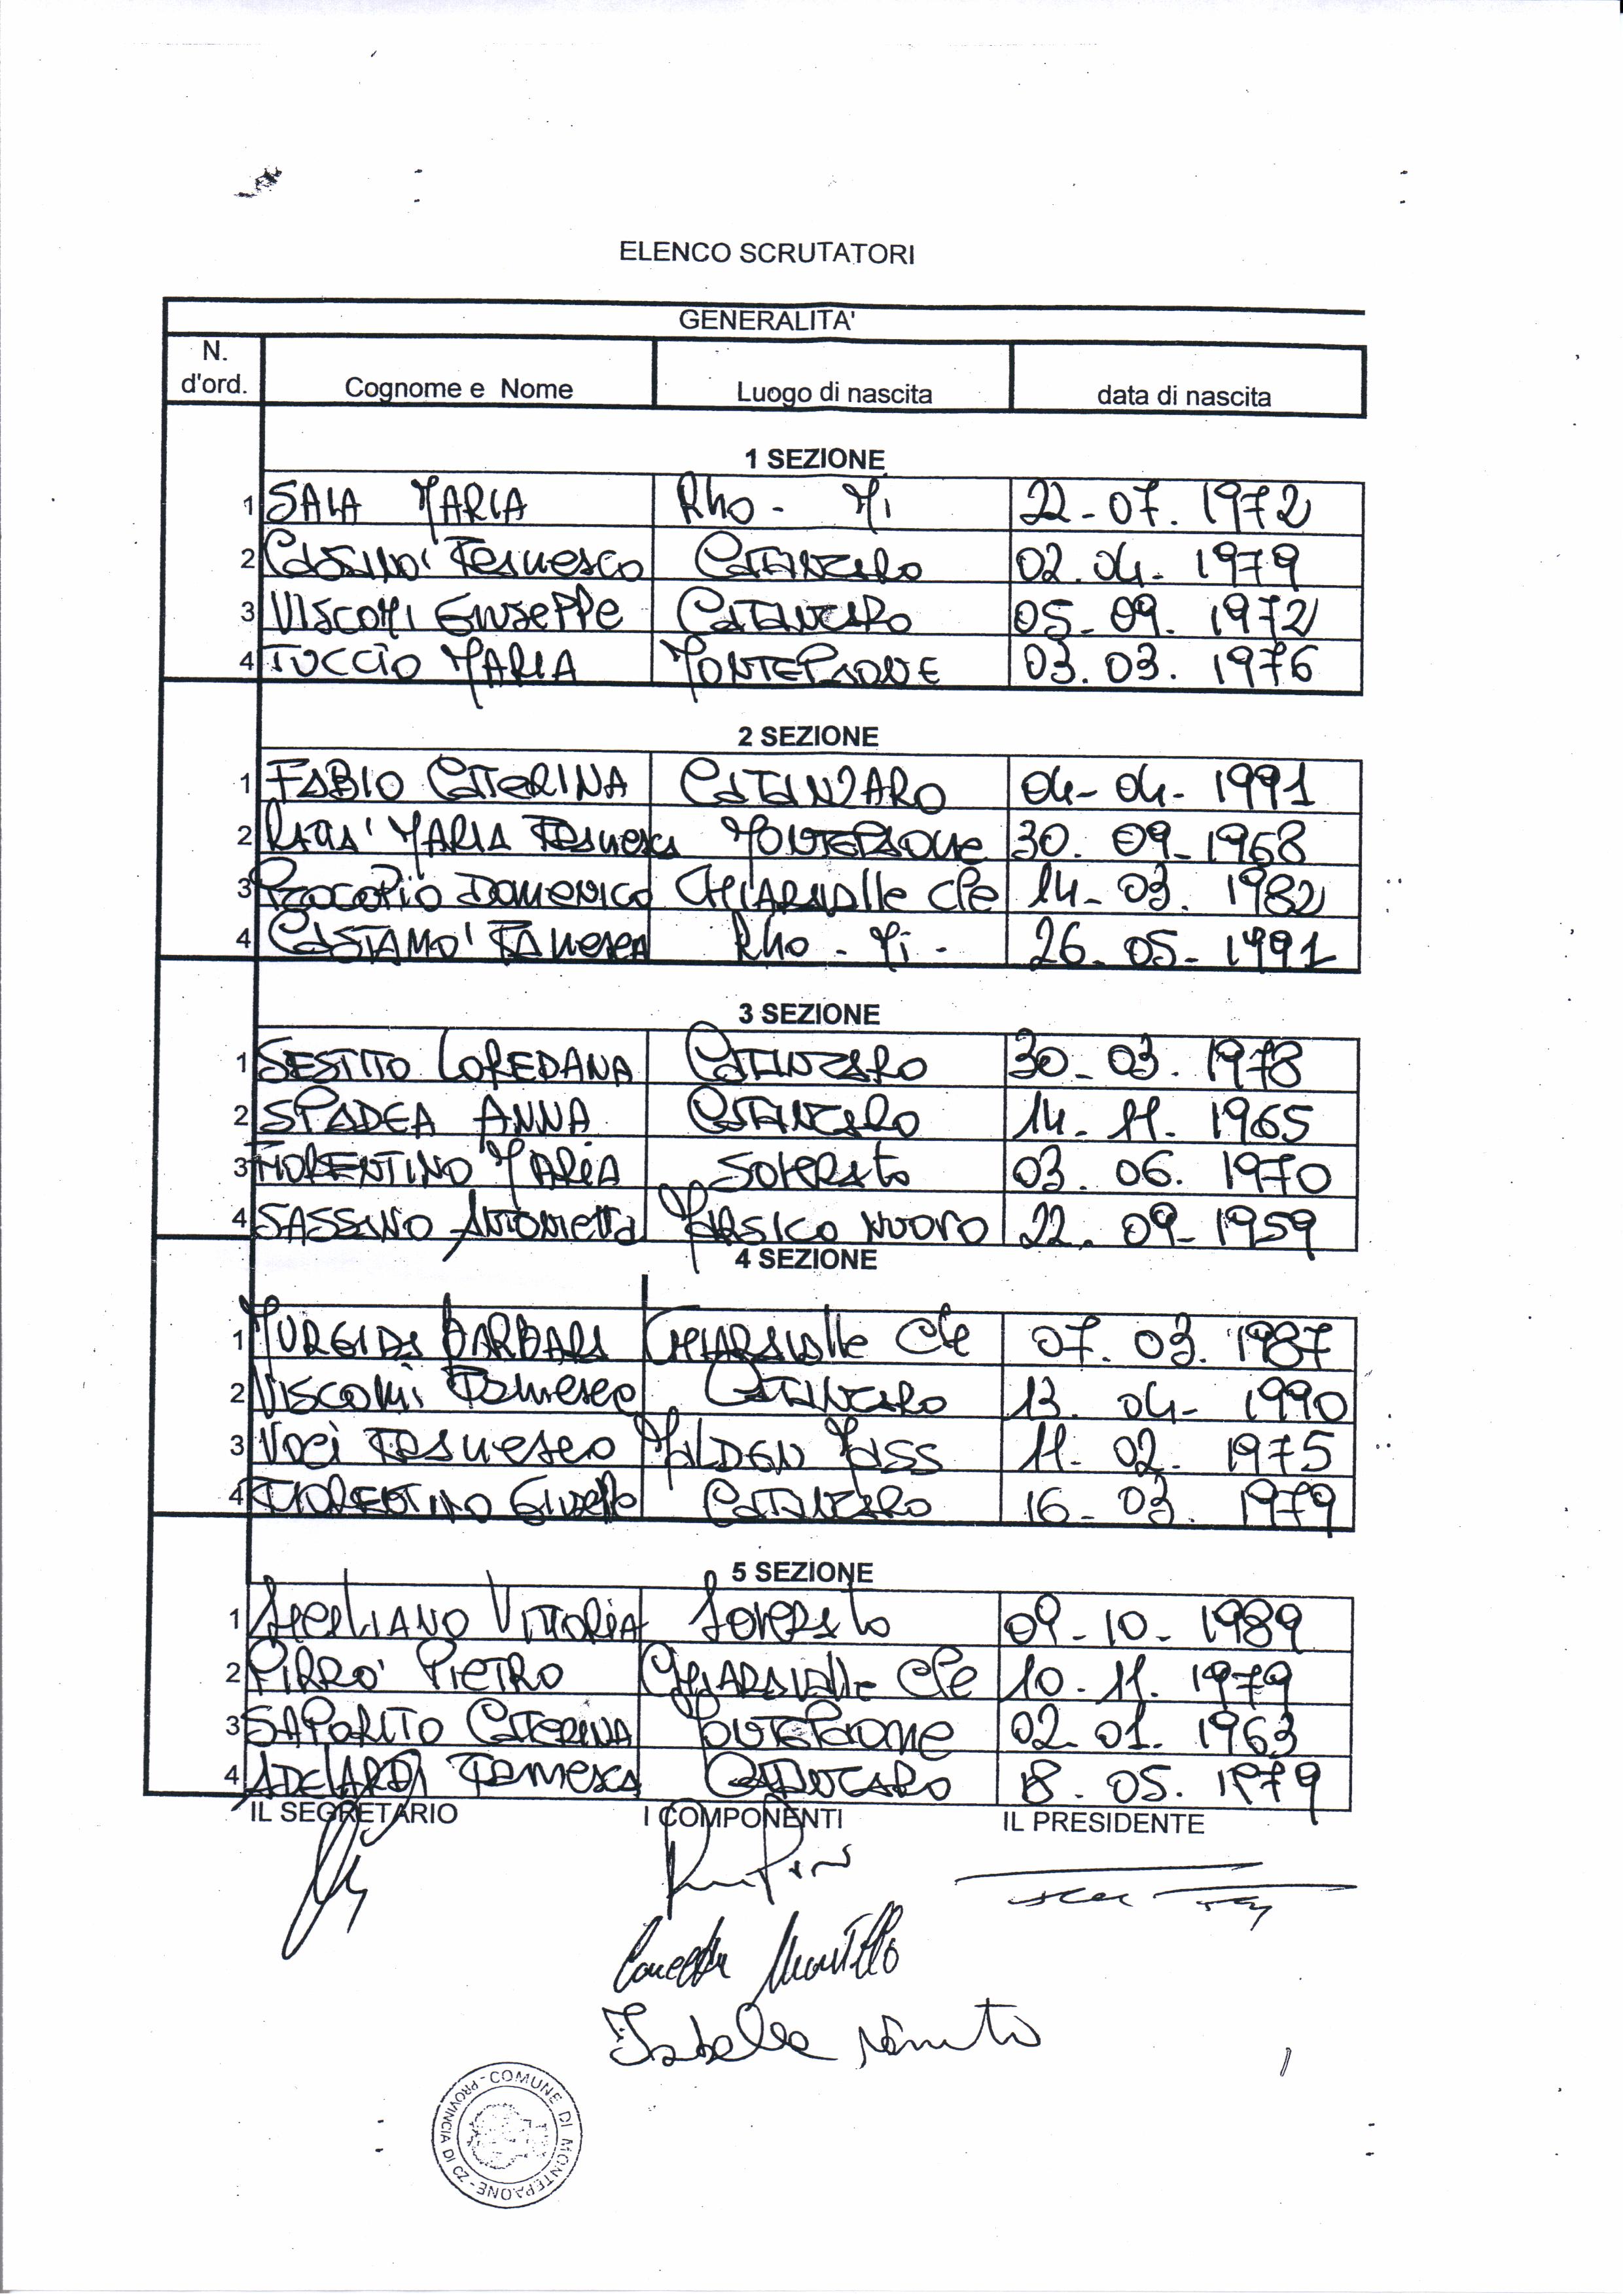 ELENCO SCRUTATORI
GENERALITA'
N. d'ord. Cognome e Nome Luogo di nascita data di nascita
1 SEZIONE
1 SALA MARIA Rho - Mi 22-07. 1972
2 Francesco CATANZARO 02.04- 1979
3 VISCOMI GIUSEPPE CATANZARO 05-09. 1972
4 TUCCIO MARIA MONTEPAONE 03.03. 1976
2 SEZIONE
1 FABIO CATERINA CATANZARO 04-04- 1991
2 MARIA Francesca MONTEPAONE 30. 09-1968
3 PROCOPIO DOMENICO CHIARAVALLE CLe 14-03. 1982
4 Rho - Mi - 26-05-1991
3 SEZIONE
1 SESTITO LOREDANA CATANZARO 30-03. 1978
2 SPADEA ANNA CATANZARO 14-11. 1965
3 FIORENTINO MARIA SOVERATO 03. 06. 1970
4 SASSANO Antonietta MARSICO NUOVO 22. 09-1959
4 SEZIONE
1 BARBARA CHIARAVALLE CLe 07. 03. 1987
2 VISCOMI Francesco CATANZARO 13. 04- 1990
3 VOCI Francesco MALDEN MASS 11. 02. 1975
4 FIORENTINO Giuseppe CATANZARO 16-03. 1979
5 SEZIONE
1 VITTORIA SOVERATO 09-10-1989
2 PIRRO' PIETRO CHIARAVALLE CLe 10-11. 1979
3 SAPORITO CATERINA MONTEPAONE 02.01. 1963
4 Francesca CATANZARO 18. 05. 1979
IL SEGRETARIO I COMPONENTI IL PRESIDENTE
Isabella
COMUNE DI MONTEPAONE - PROVINCIA DI CZ -